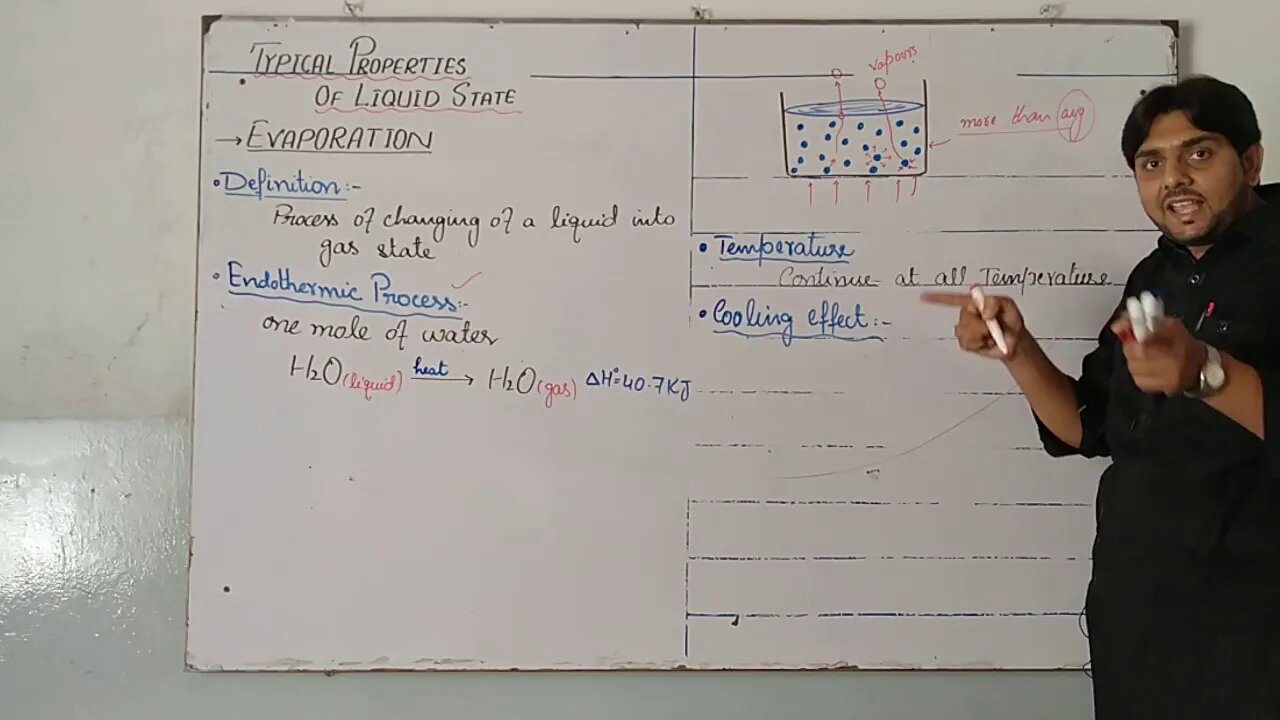 TYPICAL PROPERTIES
OF LIQUID STATE
→ EVAPORATION
• Definition:-
Process of changing of a liquid into
gas state
• Endothermic Process:-
one mole of water
H₂O(liquid) heat → H₂O(gas) ΔH°=40.7KJ
vapours
more than avg
• Temperature
Continue at all Temperature
• Cooling effect:-